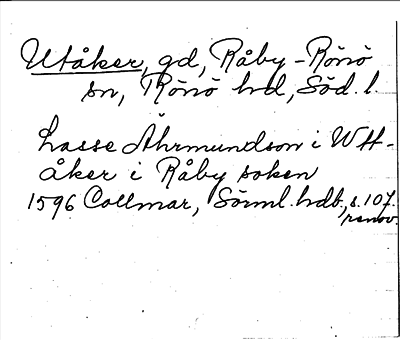 Utåker, gd, Råby-Rönö
sn, Rönö hd, Söd. l.
Lasse Åhrmundson i Wtt-
åker i Råby soken
1596 Collmar, Sörml. hdb., s. 107.
renov.